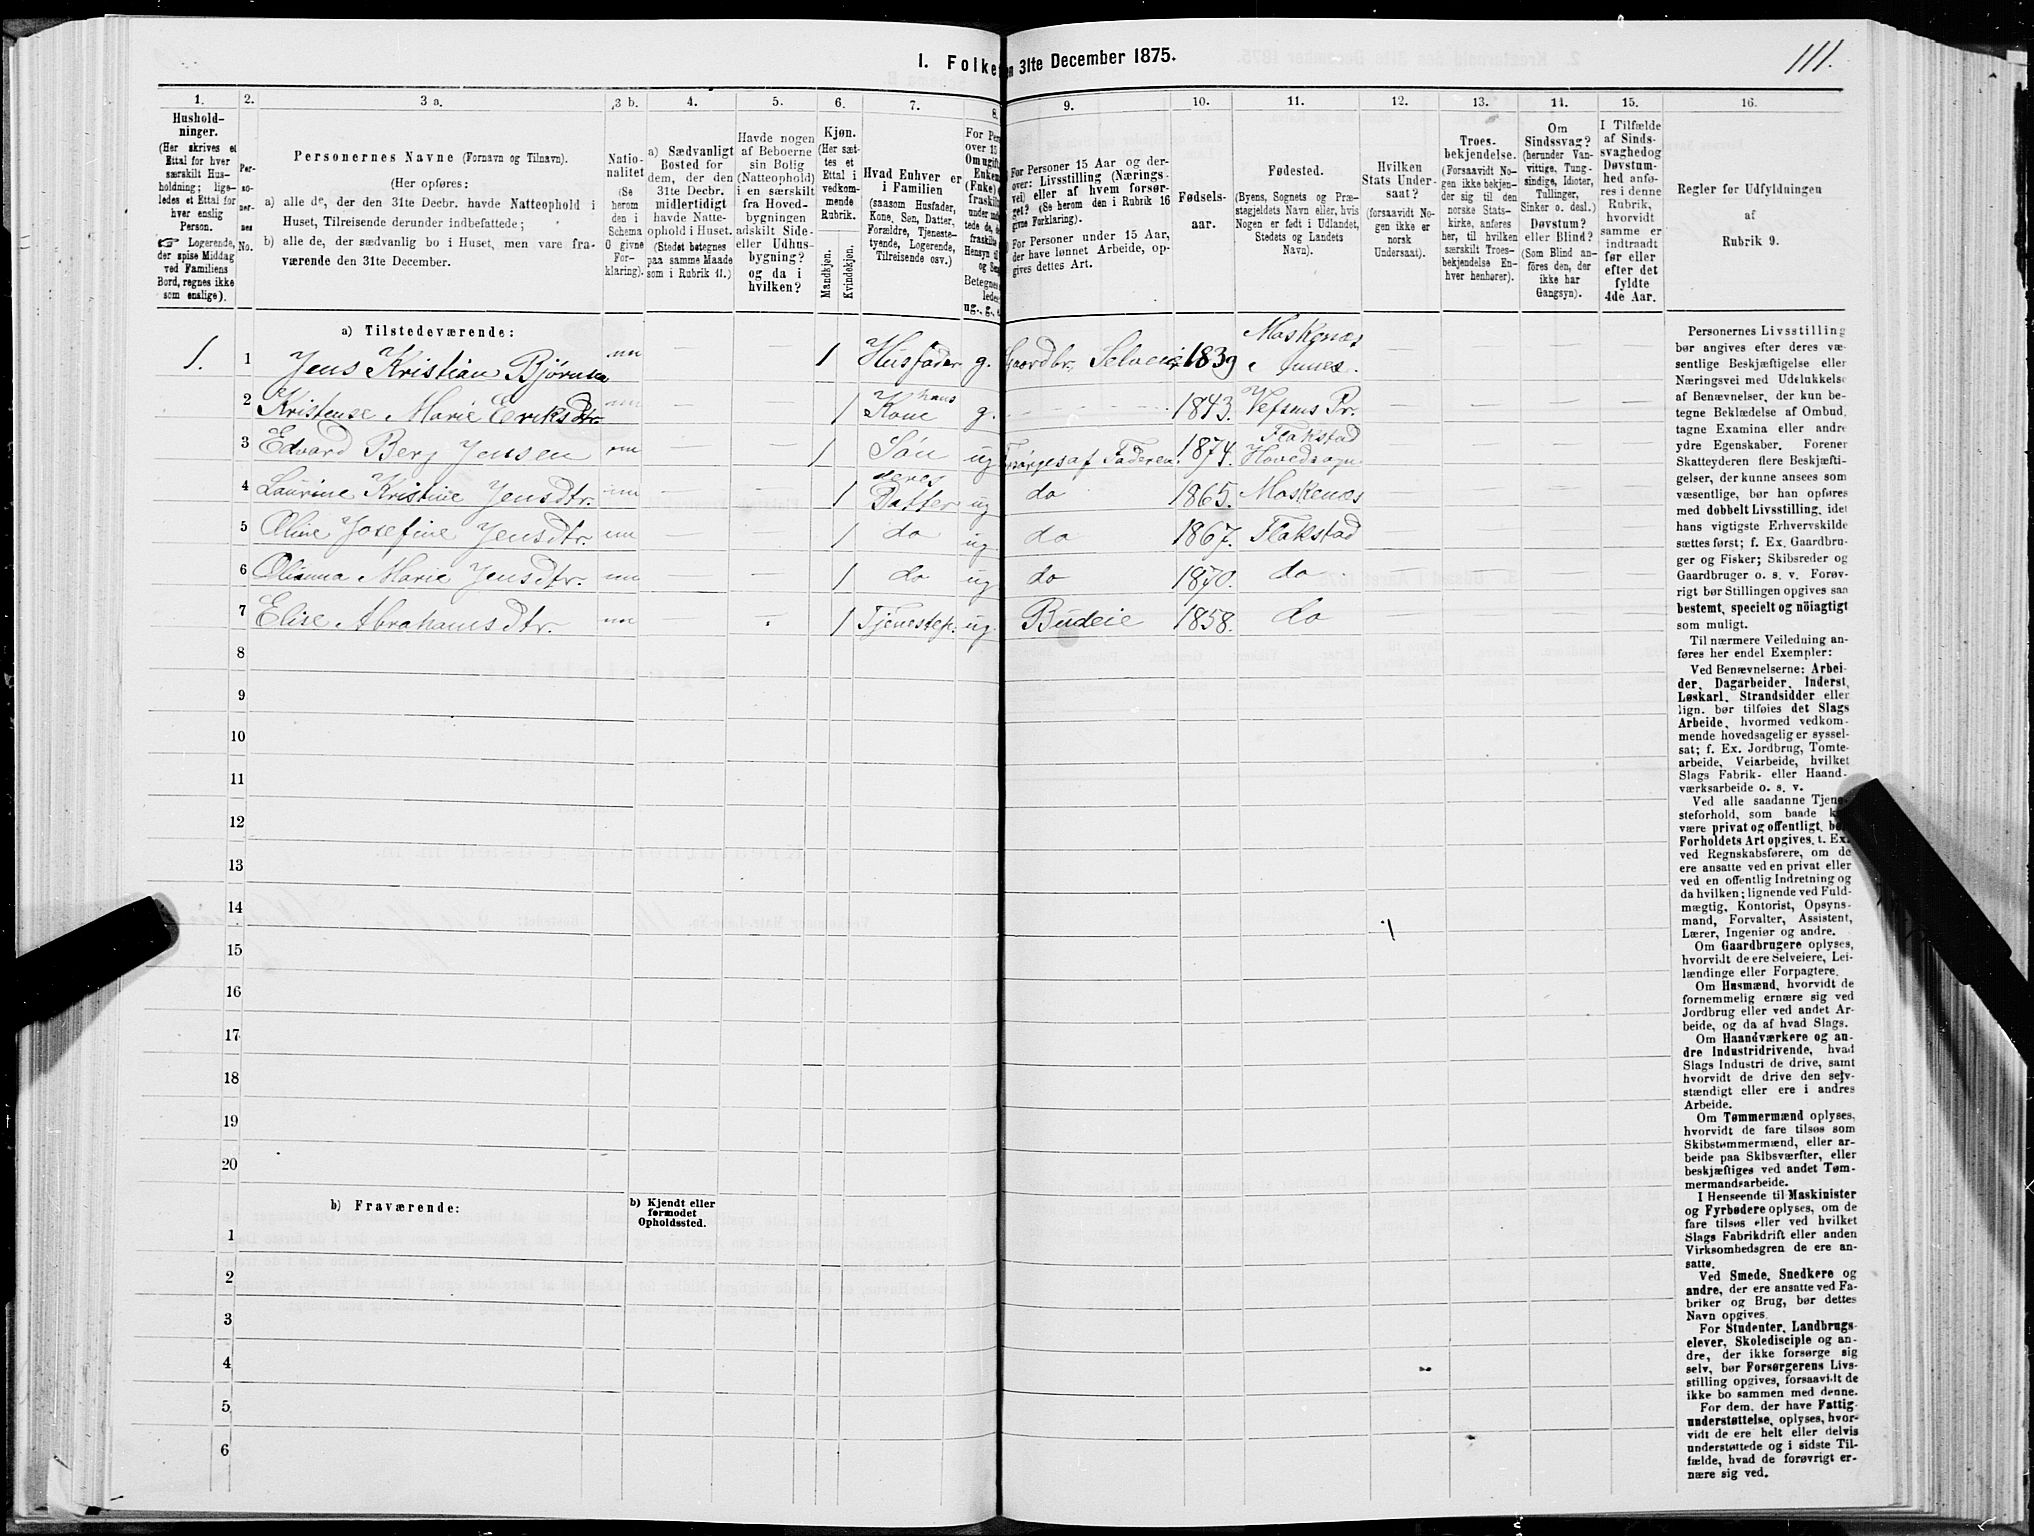 111.
1. Folke
en 31te December 1875.
1. 2. 3 a. 3 b. 4. 5. 6. 7. 8. 9. 10. 11. 12. 13. 14. 15. 16.
Hushold-
ninger.
(Her skrives et
Ettal for hver
særskilt Hus-
holdning; lige-
ledes et Ettal for
hver enslig
Person.
☞ Logerende,
der spise Middag
ved Familiens
Bord, regnes ikke
som enslige).
Per-
so-
ner-
nes
No.
Personernes Navne (Fornavn og Tilnavn).
(Her opføres:
a) alle de, der den 31te Decbr. havde Natteophold i
Huset, Tilreisende derunder indbefattede;
b) alle de, der sædvanlig bo i Huset, men vare fra-
værende den 31te December.
Natio-
nalitet
(Se
herom
den i
Schema
O givne
For-
klaring).
a) Sædvanligt
Bosted for
dem, der den
31te Decbr.
midlertidigt
havde Natte-
ophold i Huset.
(Stedet betegnes
paa samme Maade
som i Rubrik 11.)
Havde nogen
af Beboerne
sin Bolig
(Natteophold)
i en særskilt
fra Hoved-
bygningen
adskilt Side-
eller Udhus-
bygning?
og da i
hvilken?
Kjøn.
(Her sæt-
tes et
Ettal i
vedkom-
mende
Rubrik.
Mandkjøn.
Kvindekjøn.
Hvad Enhver er
i Familien
(saasom Husfader,
Kone, Søn, Datter,
Forældre, Tjeneste-
tyende, Logerende,
Tilreisende osv.)
For Per
over 15
Om ugift
Enken
(Enke) e
fraskilt
under ind
tede de,
fraskilte
Hensyn ti
og Sen
Betegnes
lede
ug., g., e
For Personer 15 Aar og der-
over: Livsstilling (Nærings-
vei) eller af hvem forsør-
get? (Se herom den i Rubrik 16
givne Forklaring).
For Personer under 15 Aar,
der have lønnet Arbeide, op-
gives dettes Art.
Fødsels-
aar.
Fødested.
(Byens, Sognets og Præ-
stegjeldets Navn eller, hvis
Nogen er født i Udlandet,
Stedets og Landets
Navn).
Hvilken
Stats Under-
saat?
(forsaavidt No-
gen ikke er
norsk
Undersaat).
Troes-
bekjendelse.
(Forsaavidt No-
gen ikke bekjen-
der sig til den
norske Stats-
kirke, anføres
her, til hvilken
særskilt Troes-
bekjendelse En-
hver henhører).
Om
Sindssvag?
(herunder Van-
vittige, Tung-
sindige, Idioter,
Tullinger,
Sinker o. desl.)
Døvstum?
eller Blind?
(Som Blind an-
føres den, der
ikke har
Gangsyn).
I Tilfælde
af Sinds-
svaghed og
Døvstum-
hed anfø-
res i denne
Rubrik,
hvorvidt
samme er
indtraadt
før eller
efter det
fyldte
4de Aar.
Regler for Udfyldningen
af
Rubrik 9.
a) Tilstedeværende:
1. 1 Jens Kristian Bjørnsen nn 1 Husfader g. Gaardbr, Selveier 1839 Moskenæs Annex.
2 Kristense Marie Eriksdtr nn — — 1 hans Kone g. 1843. Vefsens Pr. — — — —
3 Edvard Berg Jensen nn — — 1 Søn ug Forsørges af Faderen. 1874. Flakstad Hovedsogn — — — —
4 Laurine Kristine Jensdtr. nn — — 1 deres Datter ug do 1865. Moskenæs — — — —
5 Oline Josefine Jensdtr. nn — — 1 do ug. do 1867. Flakstad — — — —
6 Olianna Marie Jensdtr. nn — — 1 do ug do 1870. do — — — —
7 Elise Abrahamsdtr. nn 1 Tjenestep. ug. Budeie 1858. do — — — —
8
9
10
11
12
13
14
15
16
17
18
19
20
b) Fraværende:
b) Kjendt eller
formodet
Opholdssted.
1
2
3
4
5
6
Personernes Livsstilling
bør angives efter deres væ-
sentlige Beskjæftigelse eller
Næringsvei med Udelukkelse
af Benævnelser, der kun be-
tegne Beklædelse af Ombud,
tagne Examina eller andre
ydre Egenskaber. Forener
Skatteyderen flere Beskjæfti-
gelser, der kunne ansees som
væsentlige, bør han opføres
med dobbelt Livsstilling, idet
hans vigtigste Erhvervskilde
sættes først; f. Ex. Gaardbru-
ger og Fisker; Skibsreder og
Gaardbruger o. s. v. Forøv-
rigt bør Stillingen opgives saa
bestemt, specielt og nöiagtigt
som muligt.
Til nærmere Veiledning an-
føres her endel Exempler:
Ved Benævnelserne: Arbei-
der, Dagarbeider, Inderst,
Løskarl, Strandsidder eller
lign. bør tilføies det Slags
Arbeide, hvormed vedkom-
mende hovedsagelig er syssel-
sat; f. Ex. Jordbrug, Tomte-
arbeide, Veiarbeide, hvilket
Slags Fabrik- eller Haand-
værksarbeide o. s. v.
Ved alle saadanne Tjene-
steforhold, som baade k
være privat og offentligt, bør
Forholdets Art opgives, t. Ex.
ved Regnskabsførere, om de
ere ansatte ved en privat eller
ved en offentlig Indretning og
da hvilken; lignende ved Fuld-
mægtig, Kontorist, Opsyns-
mand, Forvalter, Assistent,
Lærer, Ingeniør og andre.
Om Gaardbrugere oplyses,
hvorvidt de ere Selveiere, Lei-
lændinge eller Forpagtere.
Om Husmænd, hvorvidt de
fornemmelig ernære sig ved
Jordbrug eller ved andet Ar-
beide, og da af hvad Slags.
Om Haandværkere og an-
dre Industridrivende, hvad
Slags Industri de drive, samt
hvorvidt de drive den selv-
stændigt eller ere i andres
Arbeide.
Om Tømmermænd oplyses,
hvorvidt de fare tilsøs som
Skibstømmermænd, eller ar-
beide paa Skibsværfter, eller
beskjæftiges ved andet Tøm-
mermandsarbeide.
I Henseende til Maskinister
og Fyrbødere oplyses, om de
fare tilsøs eller ved hvilket
Slags Fabrikdrift eller anden
Virksomhedsgren de ere an-
satte.
Ved Smede, Snedkere og
andre, der ere ansatte ved Fa-
briker og Brug, bør dettes
Navn opgives.
For Studenter, Landbrugs-
elever, Skoledisciple og an-
dre, der ikke forsørge sig
selv, bør Forsørgerens Livs-
stilling opgives, forsaavidt de
ikke bo sammen med denne.
For dem, der have Fattig-
understøttelse, oplyses, hvor-
vidt de ere helt eller delvis
understøttede og i sidste Til-
fælde, hvad de forøvrigt er-
nære sig ved.